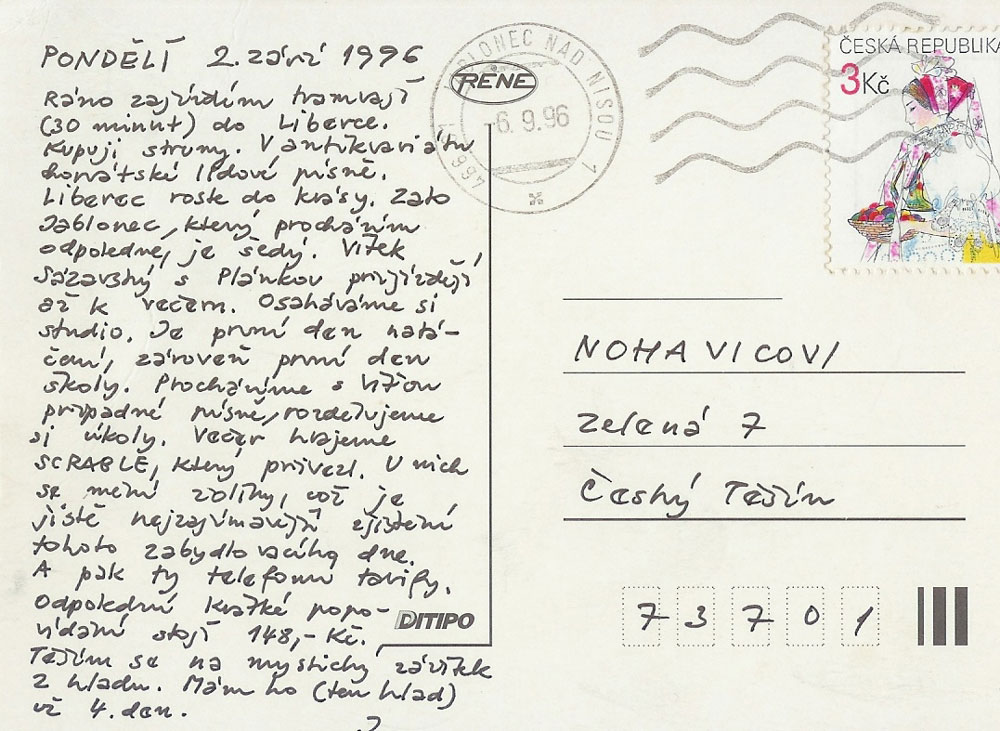 PONDĚLÍ 2. září 1996
Ráno zajíždím tramvají
(30 minut) do Liberce.
Kupuji struny. V antikvariátu
horvátské lidové písně.
Liberec roste do krásy. Zato
Jablonec, který procházím
odpoledne, je šedý. Vítek
Sázavský s Plánkou přijíždějí
až k večeru. Osaháváme si
studio. Je první den natá-
čení, zároveň první den
školy. Procházíme s Víťou
případné písně, rozdělujeme
si úkoly. Večer hrajeme
SCRABLE, který přivezl. U nich
se mění žolíky, což je
jistě nejzajímavější zjištění
tohoto zabydlovacího dne.
A pak ty telefonní tarify.
Odpolední krátké popo-
vídání stojí 148,- Kč.
Těším se na mystický zážitek
z hladu. Mám ho (ten hlad)
už 4. den.
RENE
JABLONEC NAD NISOU 1
466 01
-6. 9. 96
ČESKÁ REPUBLIKA
3Kč
NOHAVICOVI
Zelená 7
Český Těšín
73701
DITIPO